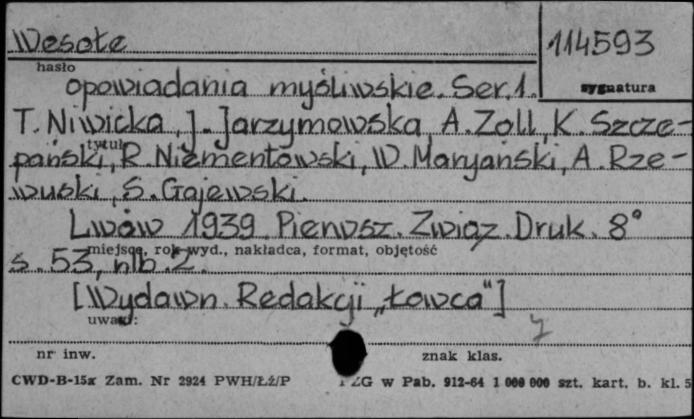 Wesołe
114593
hasło
sygnatura
opowiadania myśliwskie. Ser. 1.
T. Niwicka, J. Jarzymowska, A. Zoll, K. Szcze-
tytuł
pański, R. Niementowski, W. Maryański, A. Rze-
wuski, S. Gajewski.
Lwów 1939. Pierwsz. Związ. Druk. 8°
miejsce, rok wyd., nakładca, format, objętość
s. 53, nlb. 2.
[Wydawn. Redakcji „Łowca"]
uwagi:
nr inw.
znak klas.
CWD-B-15x Zam. Nr 2924 PWH/Łź/P
ZG w Pab. 912-64 1 000 000 szt. kart. b. kl. 5